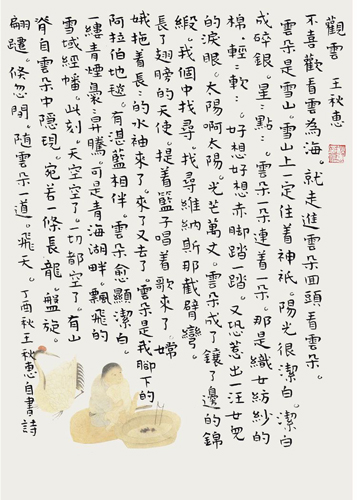 觀雲 王秋惠
不喜歡看雲為海。就走進雲朵回頭看雲朵。
雲朵是雪山。雪山上一定住着神祇。陽光很潔白。潔白
成碎銀。星:點:。雲朵一朵連着一朵。那是織女紡紗的
棉。輕:軟:。好想好想赤脚踏一踏。又恐惹出一汪女兒
的淚眼。太陽啊太陽。光芒萬丈。雲朵成了鑲了邊的錦
緞。我個中找尋。找尋維納斯那截臂彎。
長了翅膀的天使。提着籃子唱着歌來了。嫦
娥拖着長:的水袖來了。來了又去了。雲朵是我腳下的
阿拉伯地毯。有湛藍相伴。雲朵愈顯潔白。
一縷青煙裊:昇騰。可是青海湖畔。飄飛的
雪域經幡。此刻。天空空了一切都空了。有山
脊自雲朵中隱現。宛若一條長龍。盤旋。
翩躚。倏忽間。隨雲朵一道。飛天。丁酉秋王秋惠自書詩